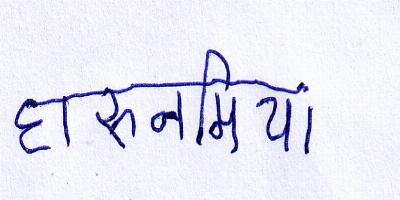 हारुनमियां